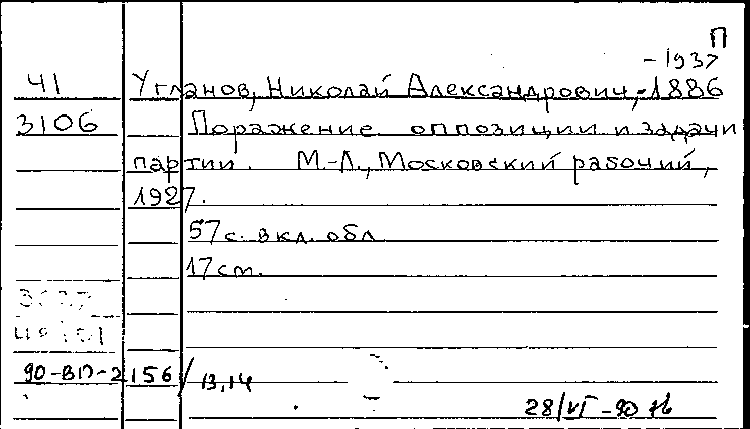 П
-1937
41 Угланов, Николай Александрович, -1886
3106 Поражение оппозиции и задачи
партии. М.-Л., Московский рабочий,
1927.
57 с. вкл. обл
17 ст.
90-ВП-2156/13,14
28/VI-90